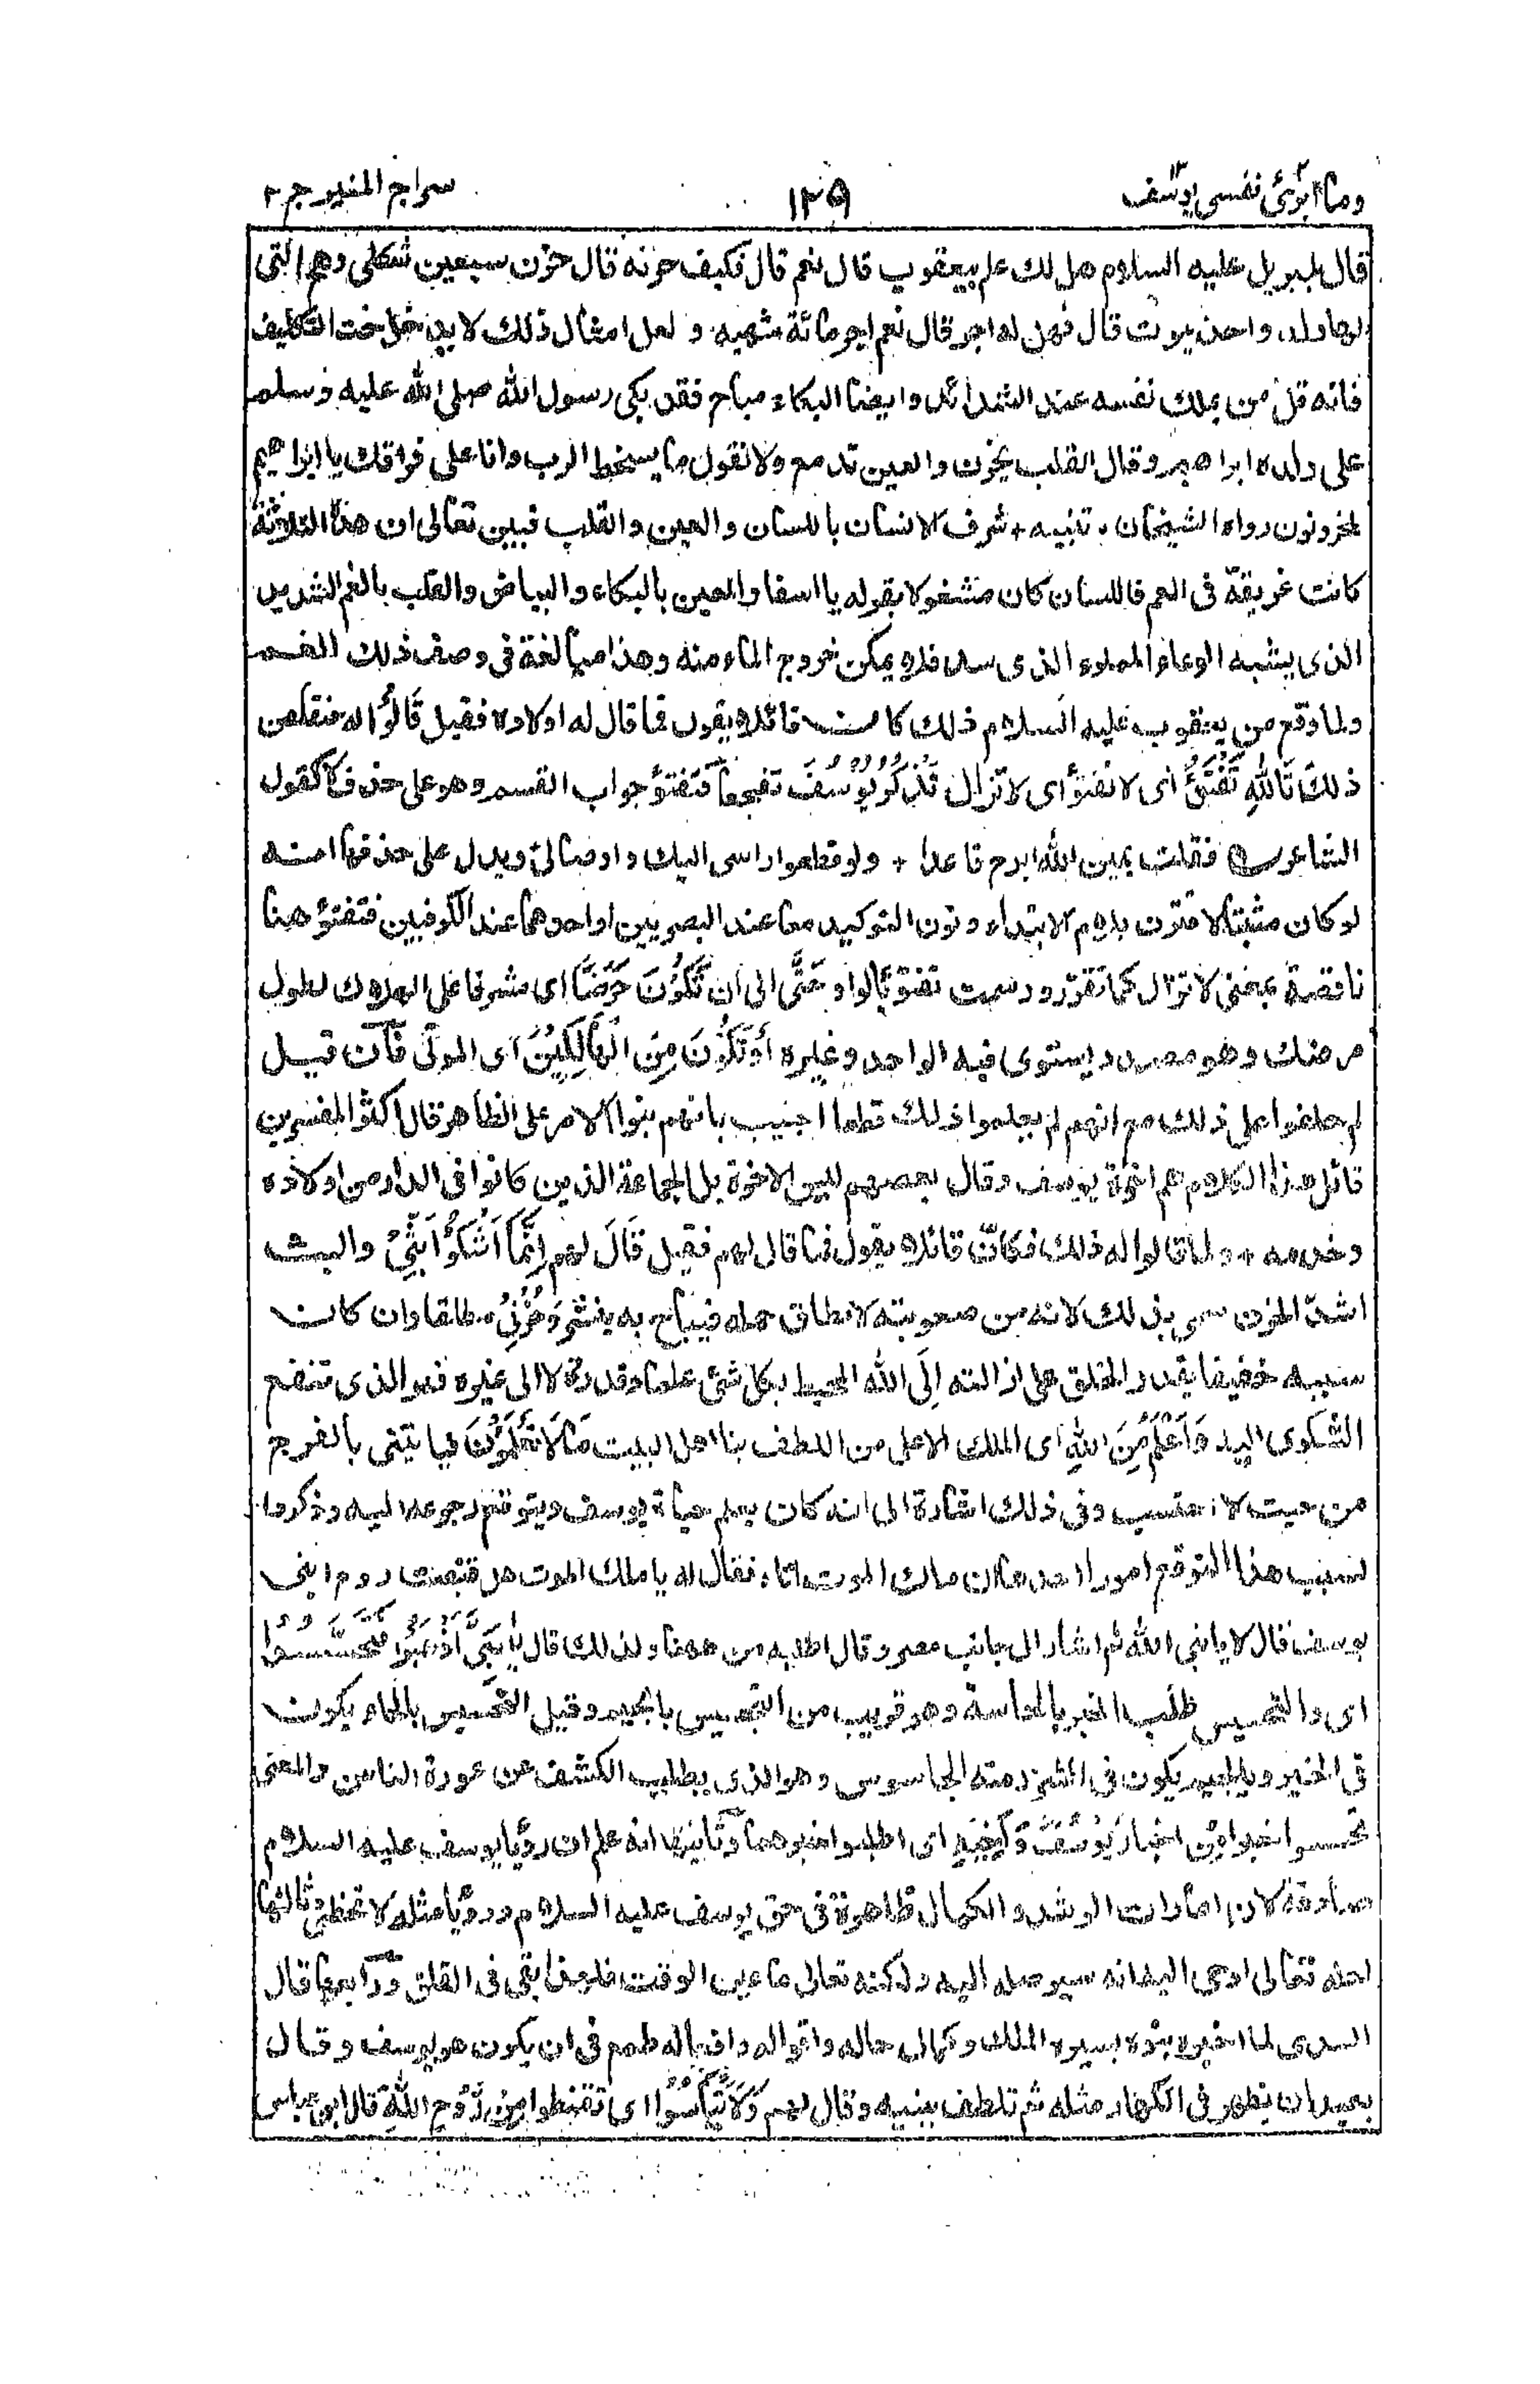 وما ابرئ نفسی یوسف ۱۲
۱۲۹
سراج المنیر ج ۲
قال لجبریل علیه السلام هل لك علم بیعقوب قال نعم قال فكیف حزنه قال حزن سبعین ثكلی وهی التی
لها ولد واحد یموت قال فهل له اجر قال نعم اجر مائة شهید ولعل امثال ذلك لا یدخل تحت التكلیف
فانه قل من یملك نفسه عند الشدائد وایضا البكاء مباح فقد بكی رسول الله صلی الله علیه وسلم
علی ولده ابراهیم وقال القلب یحزن والعین تدمع ولا نقول ما یسخط الرب وانا علی فراقك یا ابراهیم
لمحزونون رواه الشیخان تنبیه شرف الانسان باللسان والعین والقلب فبین تعالی ان هذه الثلاثة
كانت غریقة فی الغم فاللسان كان مشغولا بقوله یا اسفا والعین بالبكاء والبیاض والقلب بالغم الشدید
الذی یشبه الوعاء المملوء الذی سد فلا یمكن خروج الماء منه وهذا مبالغة فی وصف ذلك الغم
ولما وقع من یعقوب علیه السلام ذلك كان قائلا یقول فما قال له اولاده فقیل قَالُوْا له منقلعن
ذلك تَاللّٰهِ تَفْتَؤُ ای لا تفتؤ ای لا تزال تَذْكُرُ یُوْسُفَ تفجعا فتفتؤ جواب القسم وهو علی حذف لا كقول
الشاعر فقلت یمین الله ابرح قاعدا + ولو قطعوا راسی الیك واوصالی ویدل علی حذفها انه
لو كان مثبتا لاقترن بلام الابتداء ونون التوكید معا عند البصریین او احدهما عند الكوفیین فتفتؤ هنا
ناقصة بمعنی لا تزال كما تقرر ورسمت تفتؤ بالواو حَتّٰی الی ان تَكُوْنَ حَرَضًا ای مشرفا علی الهلاك لطول
مرضك وهو مصدر یستوی فیه الواحد وغیره اَوْ تَكُوْنَ مِنَ الْهَالِكِیْنَ ای الموتی فان قیل
لم حلفوا علی ذلك مع انهم لم یعلموا ذلك قطعا اجیب بانهم بنوا الامر علی الظاهر قال اكثر المفسرین
قائل هذا الكلام هم اخوة یوسف وقال بعضهم لیس الاخوة بل الجماعة الذین كانوا فی الدار من اولاده
وخدمه + ولما قالوا له ذلك فكانّ قائلا یقول فما قال لهم فقیل قَالَ لهم اِنَّمَا اَشْكُوْا بَثِّیْ والبث
اشدّ الحزن سمی بذلك لانه من صعوبته لا یطاق حمله فیباح به ینشر وَحُزْنِیْ مطلقا وان كان
سببه خفیفا یقدر الخلق علی ازالته اِلَی اللّٰهِ المحیط بكل شئ علما وقدرة لا الی غیره فهو الذی تنفع
الشكوی الیه وَاَعْلَمُ مِنَ اللّٰهِ ای الملك الاعلی من اللطف بنا اهل البیت مَا لَا تَعْلَمُوْنَ فیاتینی بالفرج
من حیث لا احتسب وفی ذلك اشارة الی انه كان یعلم حیاة یوسف ویتوقع رجوعه الیه وذكروا
لسبب هذا التوقع امورا احدها ان ملك الموت اتاه فقال له یا ملك الموت هل قبضت روح ابنی
یوسف قال لا یا نبی الله ثم اشار الی جانب مصر وقال اطلبه من ههنا ولذلك قال یٰبَنِیَّ اذْهَبُوْا فَتَحَسَّسُوْا
ای والتحسس طلب الخبر بالحاسة وهو قریب من التجسس بالجیم وقیل التحسس بالحاء یكون
فی الخیر وبالجیم یكون فی الشر ومنه الجاسوس وهو الذی یطلب الكشف عن عورة الناس والمعنی
تحسسوا خبرا من اخبار یُوْسُفَ وَاَخِیْهِ ای اطلبوا خبرهما وثانیها انه علم ان رؤیا یوسف علیه السلام
صادقة لان امارات الرشد والكمال ظاهرة فی حق یوسف علیه السلام ورؤیا مثله لا تخطئ وثالثها
لعله تعالی اوحی الیه انه سیوصله الیه ولكنه تعالی ما عین الوقت فلهذا بقی فی القلق ورابعها قال
السدی لما اخبره بنوه بسیره الملك وكمال حاله واقواله وافعاله طمع فی ان یكون هو یوسف وقال
بعید ان یظهر فی الكفار مثله ثم تلطف ببنیه وقال لهم وَلَا تَیْاَسُوْا ای تقنطوا مِنْ رَّوْحِ اللّٰهِ قال ابن عباس